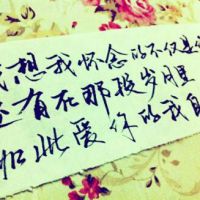 我想我怀念的不仅是
还有在那段岁月里
如此爱你的我自